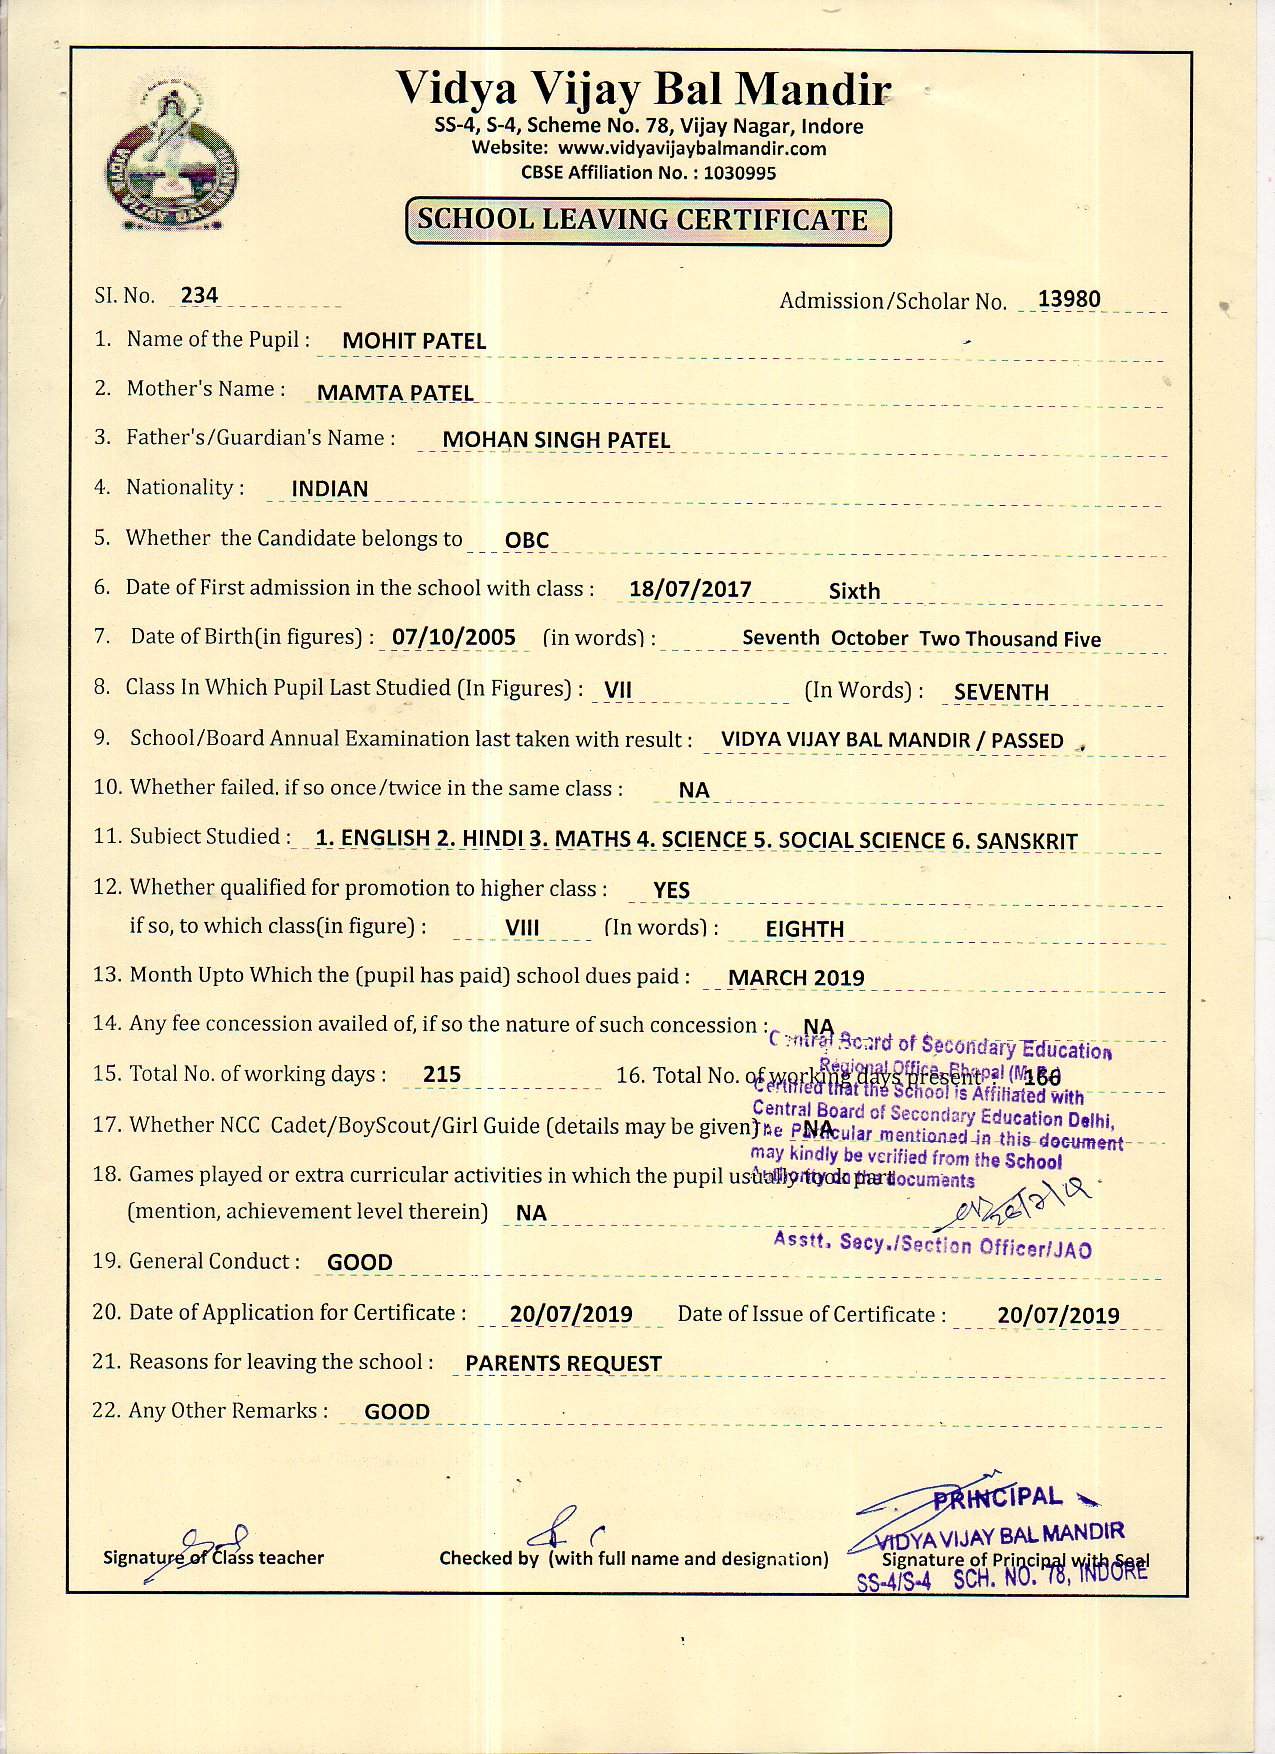 Vidya Vijay Bal Mandir
SS-4, S-4, Scheme No. 78, Vijay Nagar, Indore
Website: www.vidyavijaybalmandir.com
CBSE Affiliation No. : 1030995
VIDYA VIJAY BAL MANDIR
SCHOOL LEAVING CERTIFICATE
SI. No. 234 Admission/Scholar No. 13980
1. Name of the Pupil : MOHIT PATEL
2. Mother's Name : MAMTA PATEL
3. Father's/Guardian's Name : MOHAN SINGH PATEL
4. Nationality : INDIAN
5. Whether the Candidate belongs to OBC
6. Date of First admission in the school with class : 18/07/2017 Sixth
7. Date of Birth(in figures) : 07/10/2005 (in words) : Seventh October Two Thousand Five
8. Class In Which Pupil Last Studied (In Figures) : VII (In Words) : SEVENTH
9. School/Board Annual Examination last taken with result : VIDYA VIJAY BAL MANDIR / PASSED
10. Whether failed. if so once/twice in the same class : NA
11. Subject Studied : 1. ENGLISH 2. HINDI 3. MATHS 4. SCIENCE 5. SOCIAL SCIENCE 6. SANSKRIT
12. Whether qualified for promotion to higher class : YES
if so, to which class(in figure) : VIII (In words) : EIGHTH
13. Month Upto Which the (pupil has paid) school dues paid : MARCH 2019
14. Any fee concession availed of, if so the nature of such concession : NA
Central Board of Secondary Education
Regional Office, Bhopal (M.P.)
15. Total No. of working days : 215 16. Total No. of working days present :
Certified that the School is Affiliated with
Central Board of Secondary Education Delhi,
17. Whether NCC Cadet/BoyScout/Girl Guide (details may be given) : NA
The Particular mentioned in this document
may kindly be verified from the School
18. Games played or extra curricular activities in which the pupil usually took part
documents
(mention, achievement level therein) NA
Asstt. Secy./Section Officer/JAO
19. General Conduct : GOOD
20. Date of Application for Certificate : 20/07/2019 Date of Issue of Certificate : 20/07/2019
21. Reasons for leaving the school : PARENTS REQUEST
22. Any Other Remarks : GOOD
PRINCIPAL
VIDYA VIJAY BAL MANDIR
Signature of Class teacher Checked by (with full name and designation) Signature of Principal with Seal
SS-4/S-4 SCH. NO. 78, INDORE